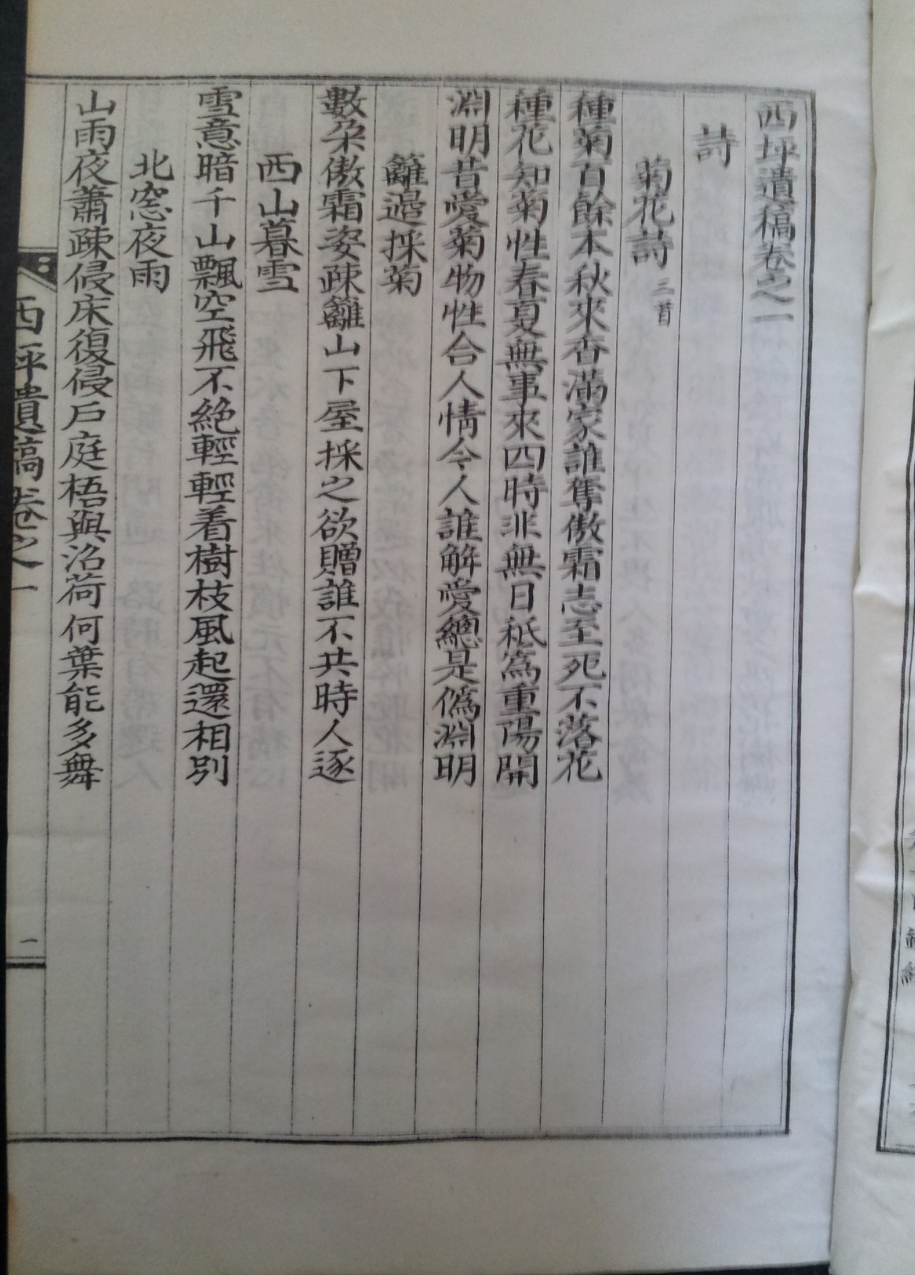 西坪遺稿卷之一
詩
菊花詩 三首
種菊百餘本秋來香滿家誰奪傲霜志至死不落花
種花知菊性春夏無事來四時非無日秪爲重陽開
淵明昔愛菊物性合人情今人誰解愛總是僞淵明
籬邉採菊
數朶傲霜姿疎籬山下屋採之欲贈誰不共時人逐
西山暮雪
雪意暗千山飄空飛不絶輕輕着樹枝風起還相別
北窓夜雨
山雨夜蕭疎侵床復侵戶庭梧與沼荷何葉能多舞
西坪遺稿卷之一
一